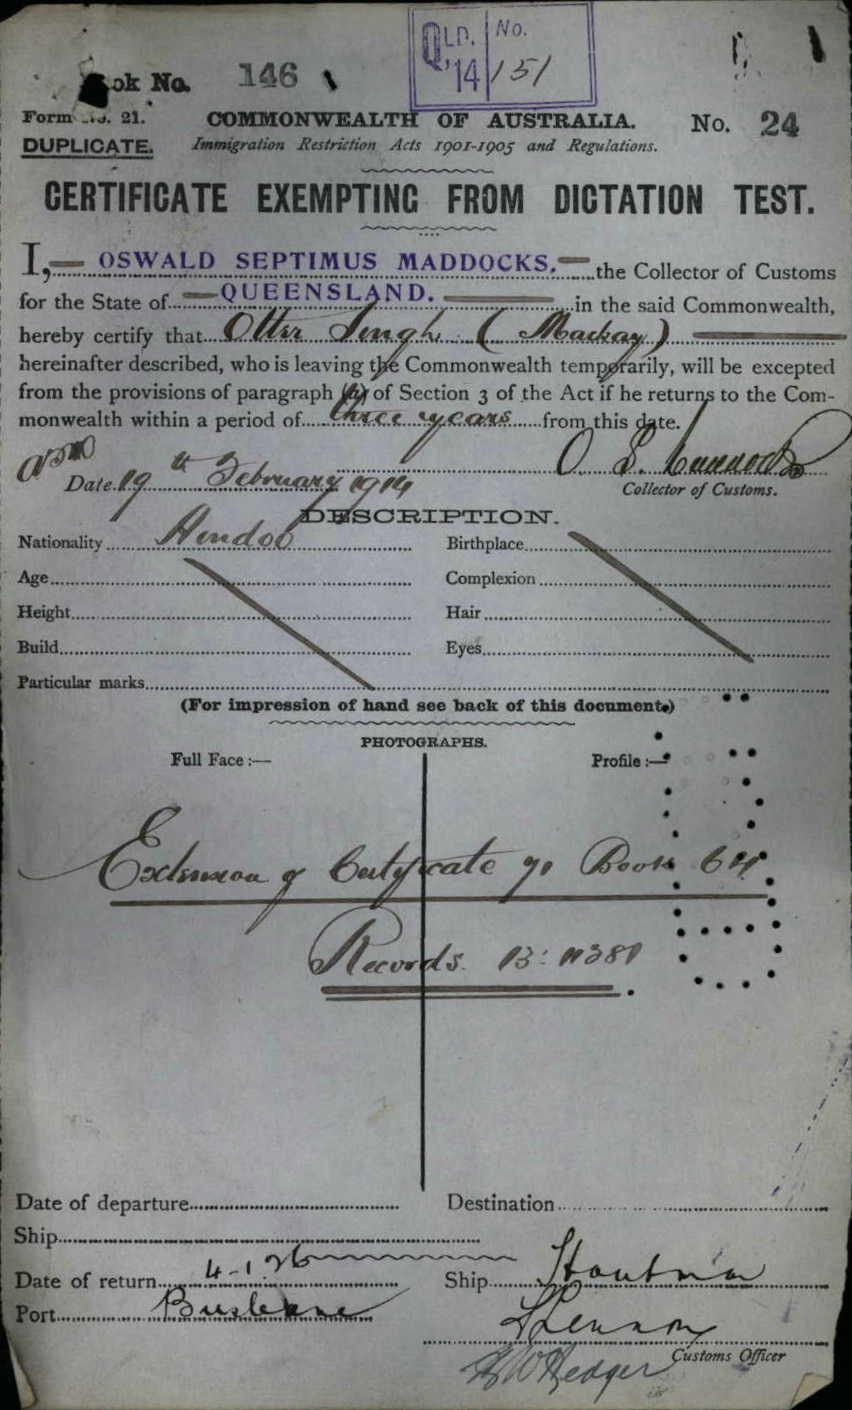 QLD. No.
'14 151
ok No. 146
Form No. 21. COMMONWEALTH OF AUSTRALIA. No. 24
DUPLICATE. Immigration Restriction Acts 1901-1905 and Regulations.
CERTIFICATE EXEMPTING FROM DICTATION TEST.
I, OSWALD SEPTIMUS MADDOCKS, the Collector of Customs
for the State of QUEENSLAND. in the said Commonwealth,
hereby certify that Otter Singh (Mackay)
hereinafter described, who is leaving the Commonwealth temporarily, will be excepted
from the provisions of paragraph (a) of Section 3 of the Act if he returns to the Com-
monwealth within a period of three years from this date.
O. S. Maddocks
Date 19th February 1914 Collector of Customs.
DESCRIPTION.
Nationality Hindoo Birthplace
Age Complexion
Height Hair
Build Eyes
Particular marks
(For impression of hand see back of this document.)
PHOTOGRAPHS.
Full Face :— Profile :—
Extension of Certificate 90 Book 64
Records 13: 11381
Date of departure Destination
Ship
Date of return 4-1 26 Ship Houtman
Port Brisbane
Lennox
Customs Officer